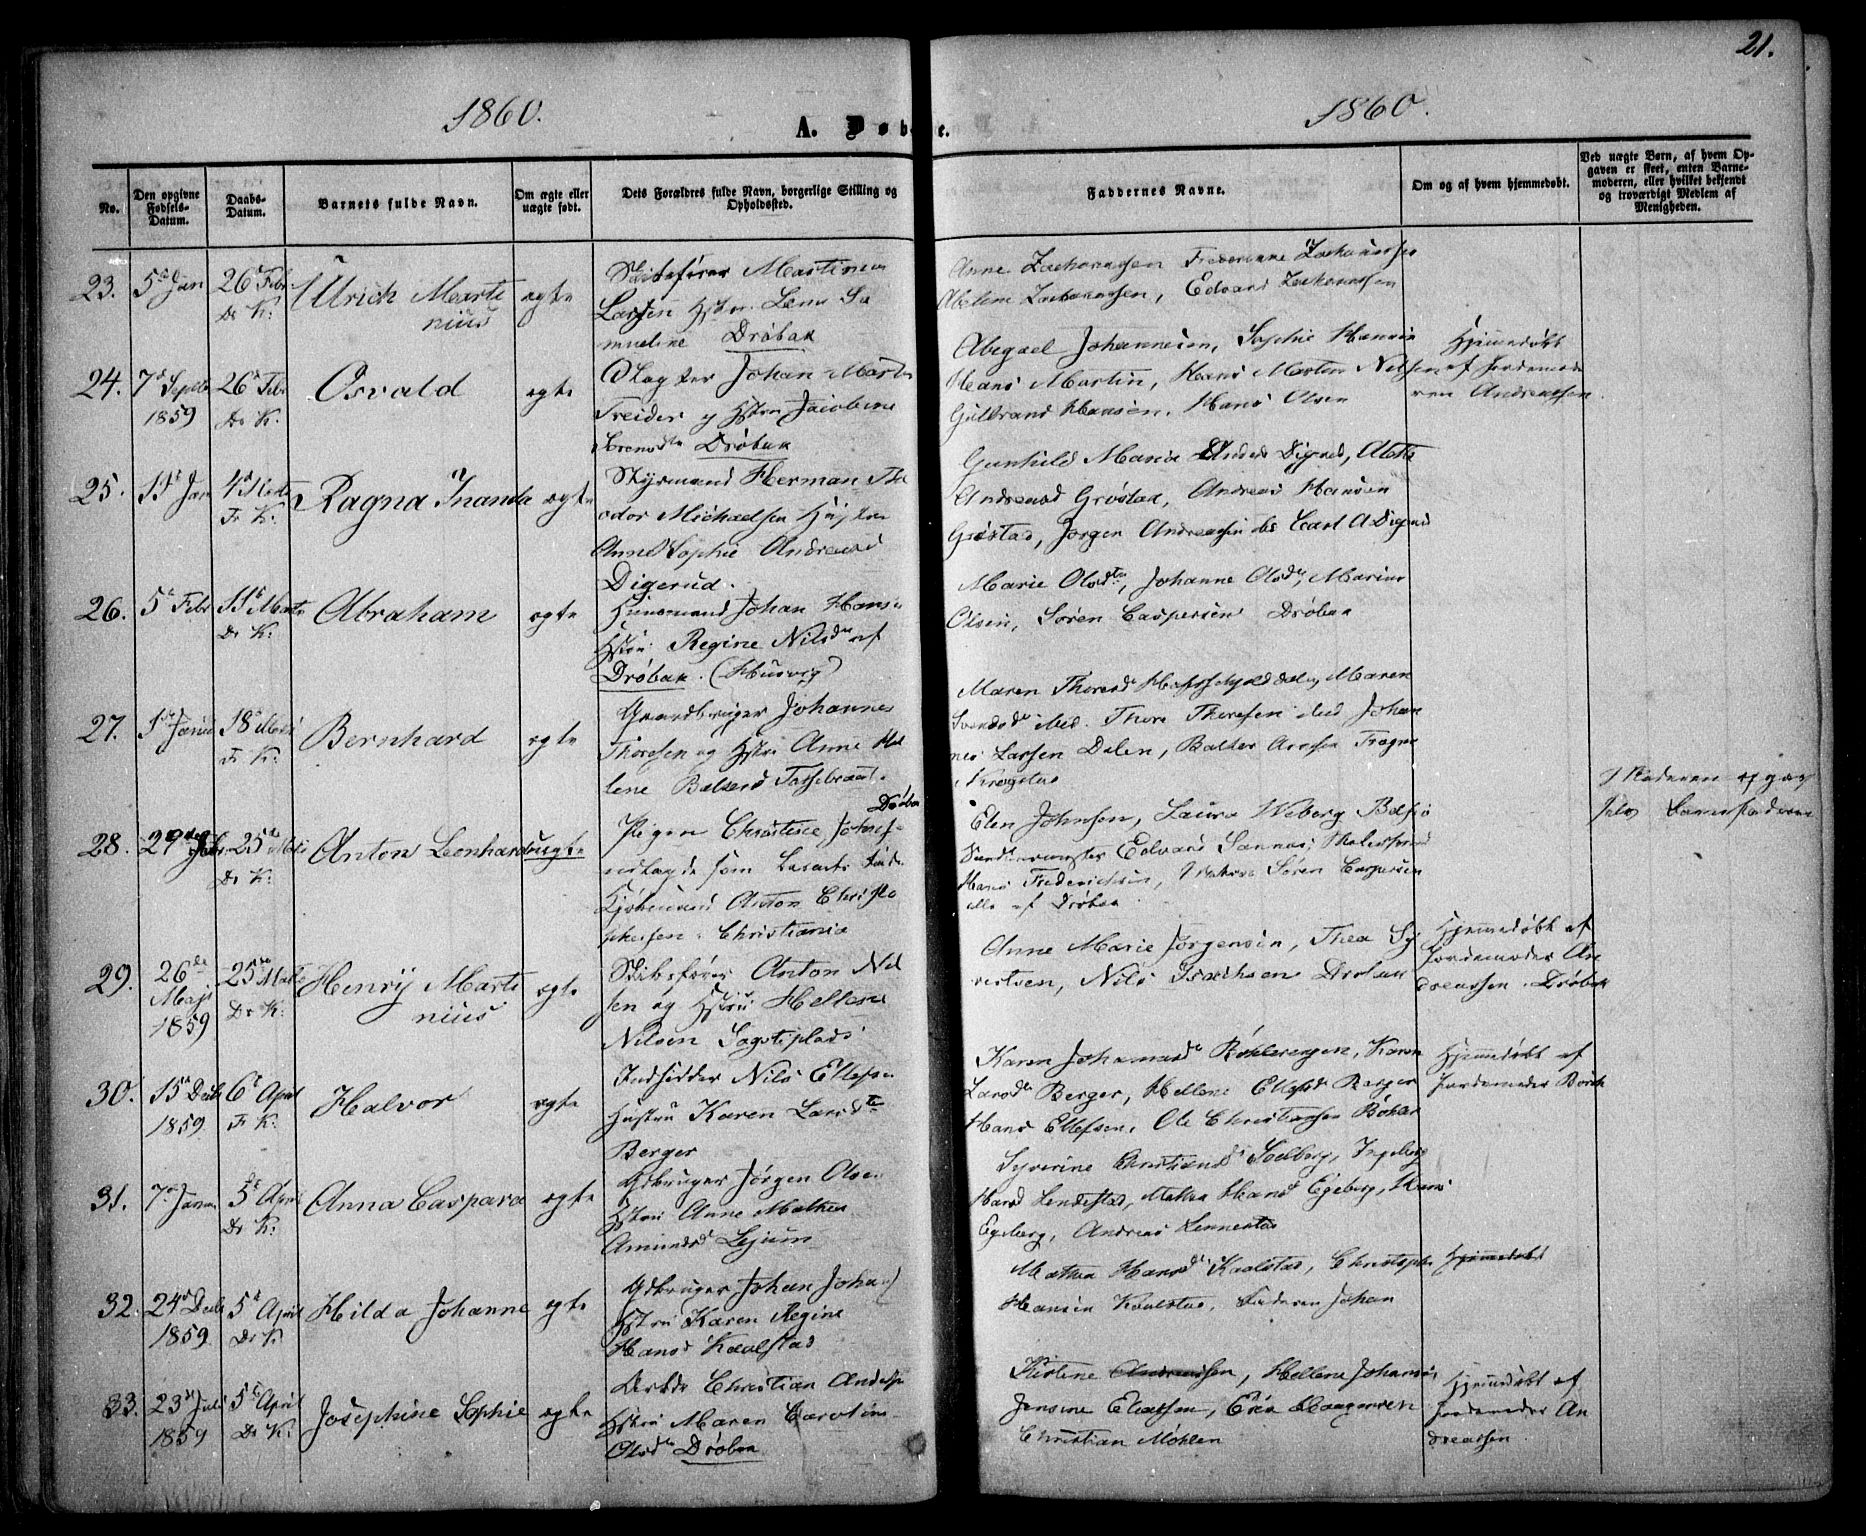 21.
1860.
1860.
A. Døbte.
No.
Den opgivne Fødsels-Datum.
Daabs-Datum.
Barnets fulde Navn.
Om ægte eller uægte født.
Dets Forældres fulde Navn, borgerlige Stilling og Opholdssted.
Faddernes Navne.
Om og af hvem hjemmedøbt.
Ved uægte Børn, af hvem Opgaven er skeet, enten Barnemoderen, eller hvilket bekjendt og troværdigt Medlem af Menigheden.
23.
5te Jan
26de Febr
Dr K.
Ulrich Marti
nius
ægte
Skibsfører
Larsen Hstru Lena Sa
mueline Drøbak
Anne Zachariassen
Zachariassen, Edvard Zachariassen
24.
7de Septbr
1859
26de Febr
Dr K.
Osvald
ægte
Slagter Johan Martin
Treider og Hstru Jacobine
Drøbak
Abegael Johannesen, Sophie Hansen
Hans Martin, Hans Martin Nilsen
Gulbrand Hansen, Hans Olsen
Hjemmedøbt
af Jordemode
ren Andreassen.
25.
11te Jan
4de Marts
Fr K.
Ragna Inanda
ægte
Styrmand Herman The
odor Michaelsen Hustru
Anne Sophie Andreasd
Digerud.
Gunhild Maria Andersd Digrud,
Andreasd Grøstad, Andreas Hansen
Grøstad, Jørgen Andreassen Carl A Digrud
26.
5te Febr
11te Marts
Dr K.
Abraham
ægte
Huusmand Johan Hansen
Hstru Regine Nilsdtr af
Drøbak. (Husvig)
Marie Olsdtr, Johanne Olsdtr, Marius
Olsen, Søren Caspersen Drøbak
27.
1ste Januar
18de Marts
Fr K.
Bernhard
ægte
Gaardbruger Johannes
Thoresen og Hstru Anne He
lene Balzersd
Maren Thoresd Maren
Svendsdtr ibid. Thore Thoresen ibid Johan
nes Larsen Dalen, Balter
Krogstad
28.
29de Febr
25de Marts
Dr K.
Anton Leonhard
uægte
Drøbak
Pigen Christine Josef-
udlagde som Barnets Fader
Kjøbmand Anton Christo
phersen Christiania
Elen Johnsen, Laura Weborg
Edvard Sannes,
Hans Frederichsen, Søren Caspersen
alle af Drøbak
Moderen og
selv Barnefaderen
29.
26de
Maji
1859
25de Marts
Dr K.
Henrÿ Marti
nius
ægte
Skibsfører Anton Nil
sen og Hstru Hellene
Nilsen
Anne Marie Jørgensen, Thea Sy
vertsen, Nils Isachsen Drøbak
Hjemmedøbt af
Jordemoder An
dreassen. Drøbak
30.
15de Decbr
1859
6te April
Fr K.
Halvor
ægte
Indsidder Nils Ellefsen
Hustru Karen Larsdtr
Berger
Karen Johannesd Karen
Larsdtr Berger, Hellene Ellefsd Berger
Hans Ellefsen, Ole Christiansen Bøhler
Hjemmedøbt af
Jordemoder
31.
7de Januar
5te April
Dr K.
Anna Caspara
ægte
Gdbruger Jørgen Olsen
Hstru Anne Mathea
Amundsd
Syverine Christiansd Solberg, Ingeborg
Hansd Mathea Hansd Egeberg, Hans
Egeberg, Andreas
32.
24de Decbr
1859
5te April
Dr K.
Hilda Johanne
ægte
Gdbruger Johan Johan
Hstru Karen Regine
Hansd Kaalstad
Mathea Hansd Kaalstad, Christoph
Hansen Kaalstad, Faderen Johan
Hjemmedøbt
33.
23de Juli
1859
5te April
Dr K.
Josephine Sophie
ægte
Christian Anders
Hstru Maren Caroline
Olsdtr Drøbak
Kirstine Andreassen, Hellene Johansen
Jensine Eliassen, Erik Haagensen
Christian Møhlen
Hjemmedøbt af
Jordemoder An
dreassen.